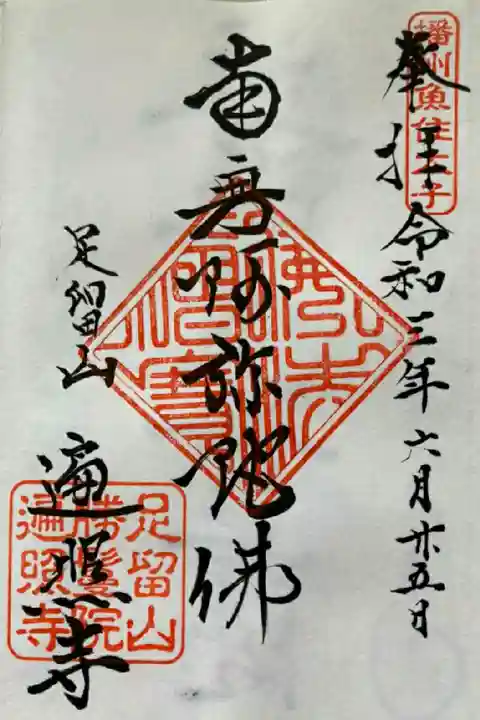 奉拝 令和三年六月廿五日
播州魚住太子
南無阿弥陀佛
足留山
遍照寺
足留山
勝鬘院
遍照寺